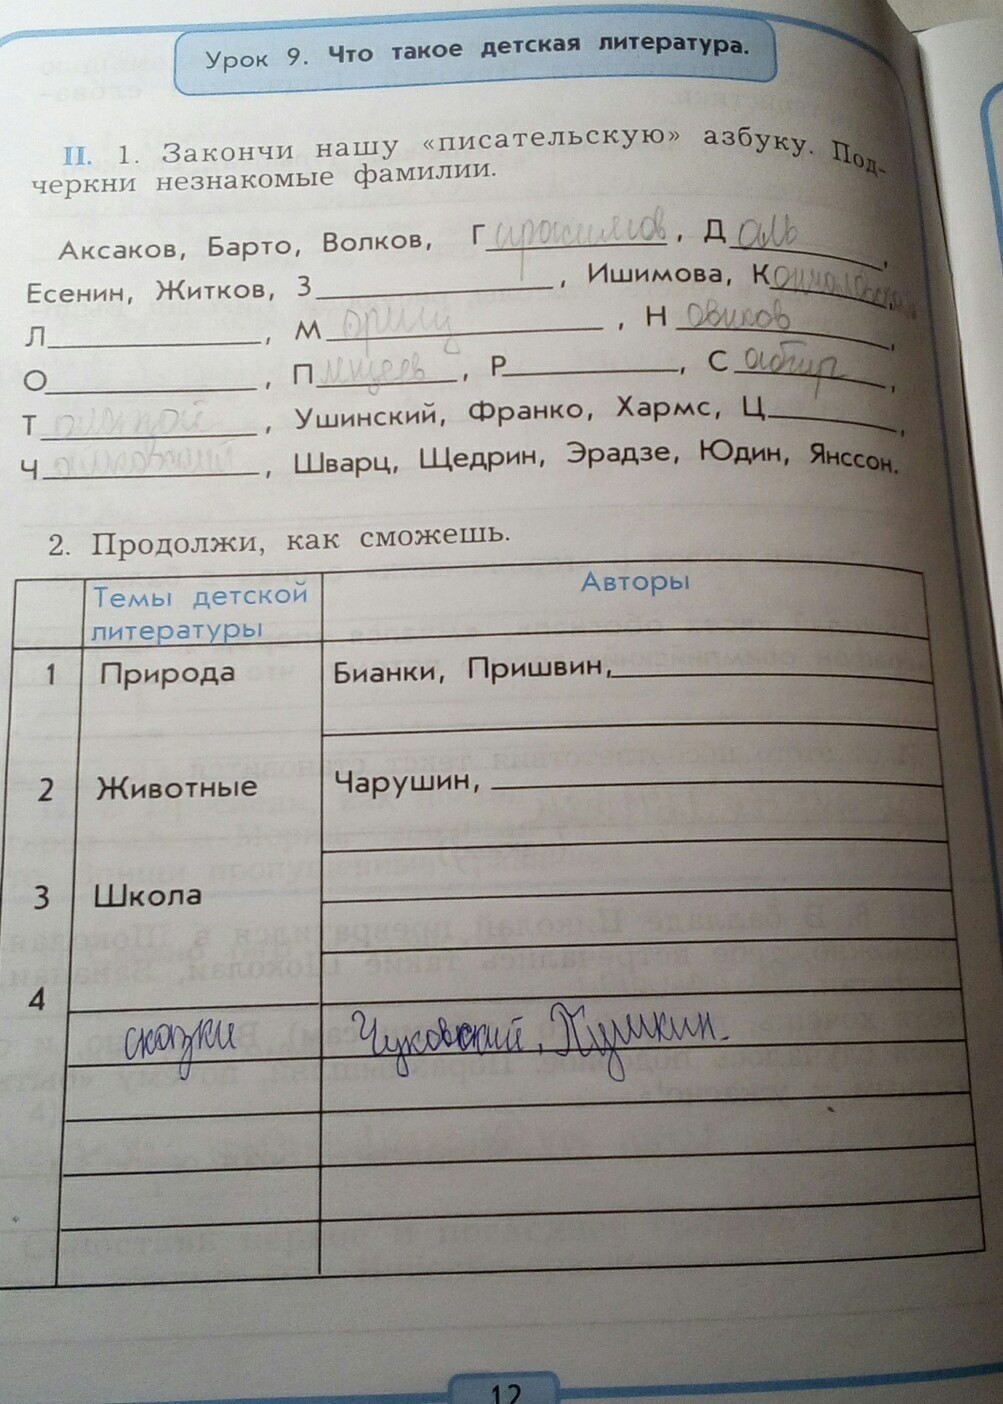 Урок 9. Что такое детская литература.
II. 1. Закончи нашу «писательскую» азбуку. Под-
черкни незнакомые фамилии.
Аксаков, Барто, Волков, Г , Даль,
Есенин, Житков, З , Ишимова, К ,
Л , М , Новиков,
О , Плещеев, Р , С ,
Толстой, Ушинский, Франко, Хармс, Ц ,
Ч , Шварц, Щедрин, Эрадзе, Юдин, Янссон.
2. Продолжи, как сможешь.
Темы детской литературы
Авторы
1 Природа Бианки, Пришвин,
2 Животные Чарушин,
3 Школа
4
сказки Чуковский, Пушкин.
12